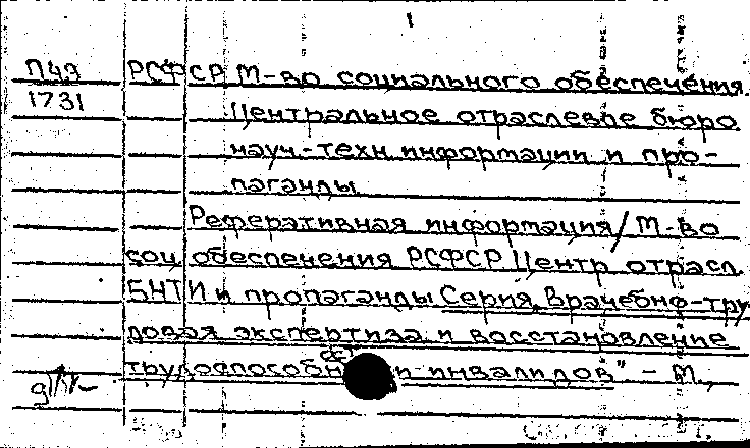 П49 РСФСР М-во социального обеспечения.
1731 Центральное отраслевое бюро
науч.-техн. информации и про-
паганды.
Реферативная информация / М-во
соц. обеспечения РСФСР Центр. отрасл.
БНТИ и пропаганды. Серия „Врачебно-тру-
довая экспертиза и восстановление
трудоспособности инвалидов" - М.,